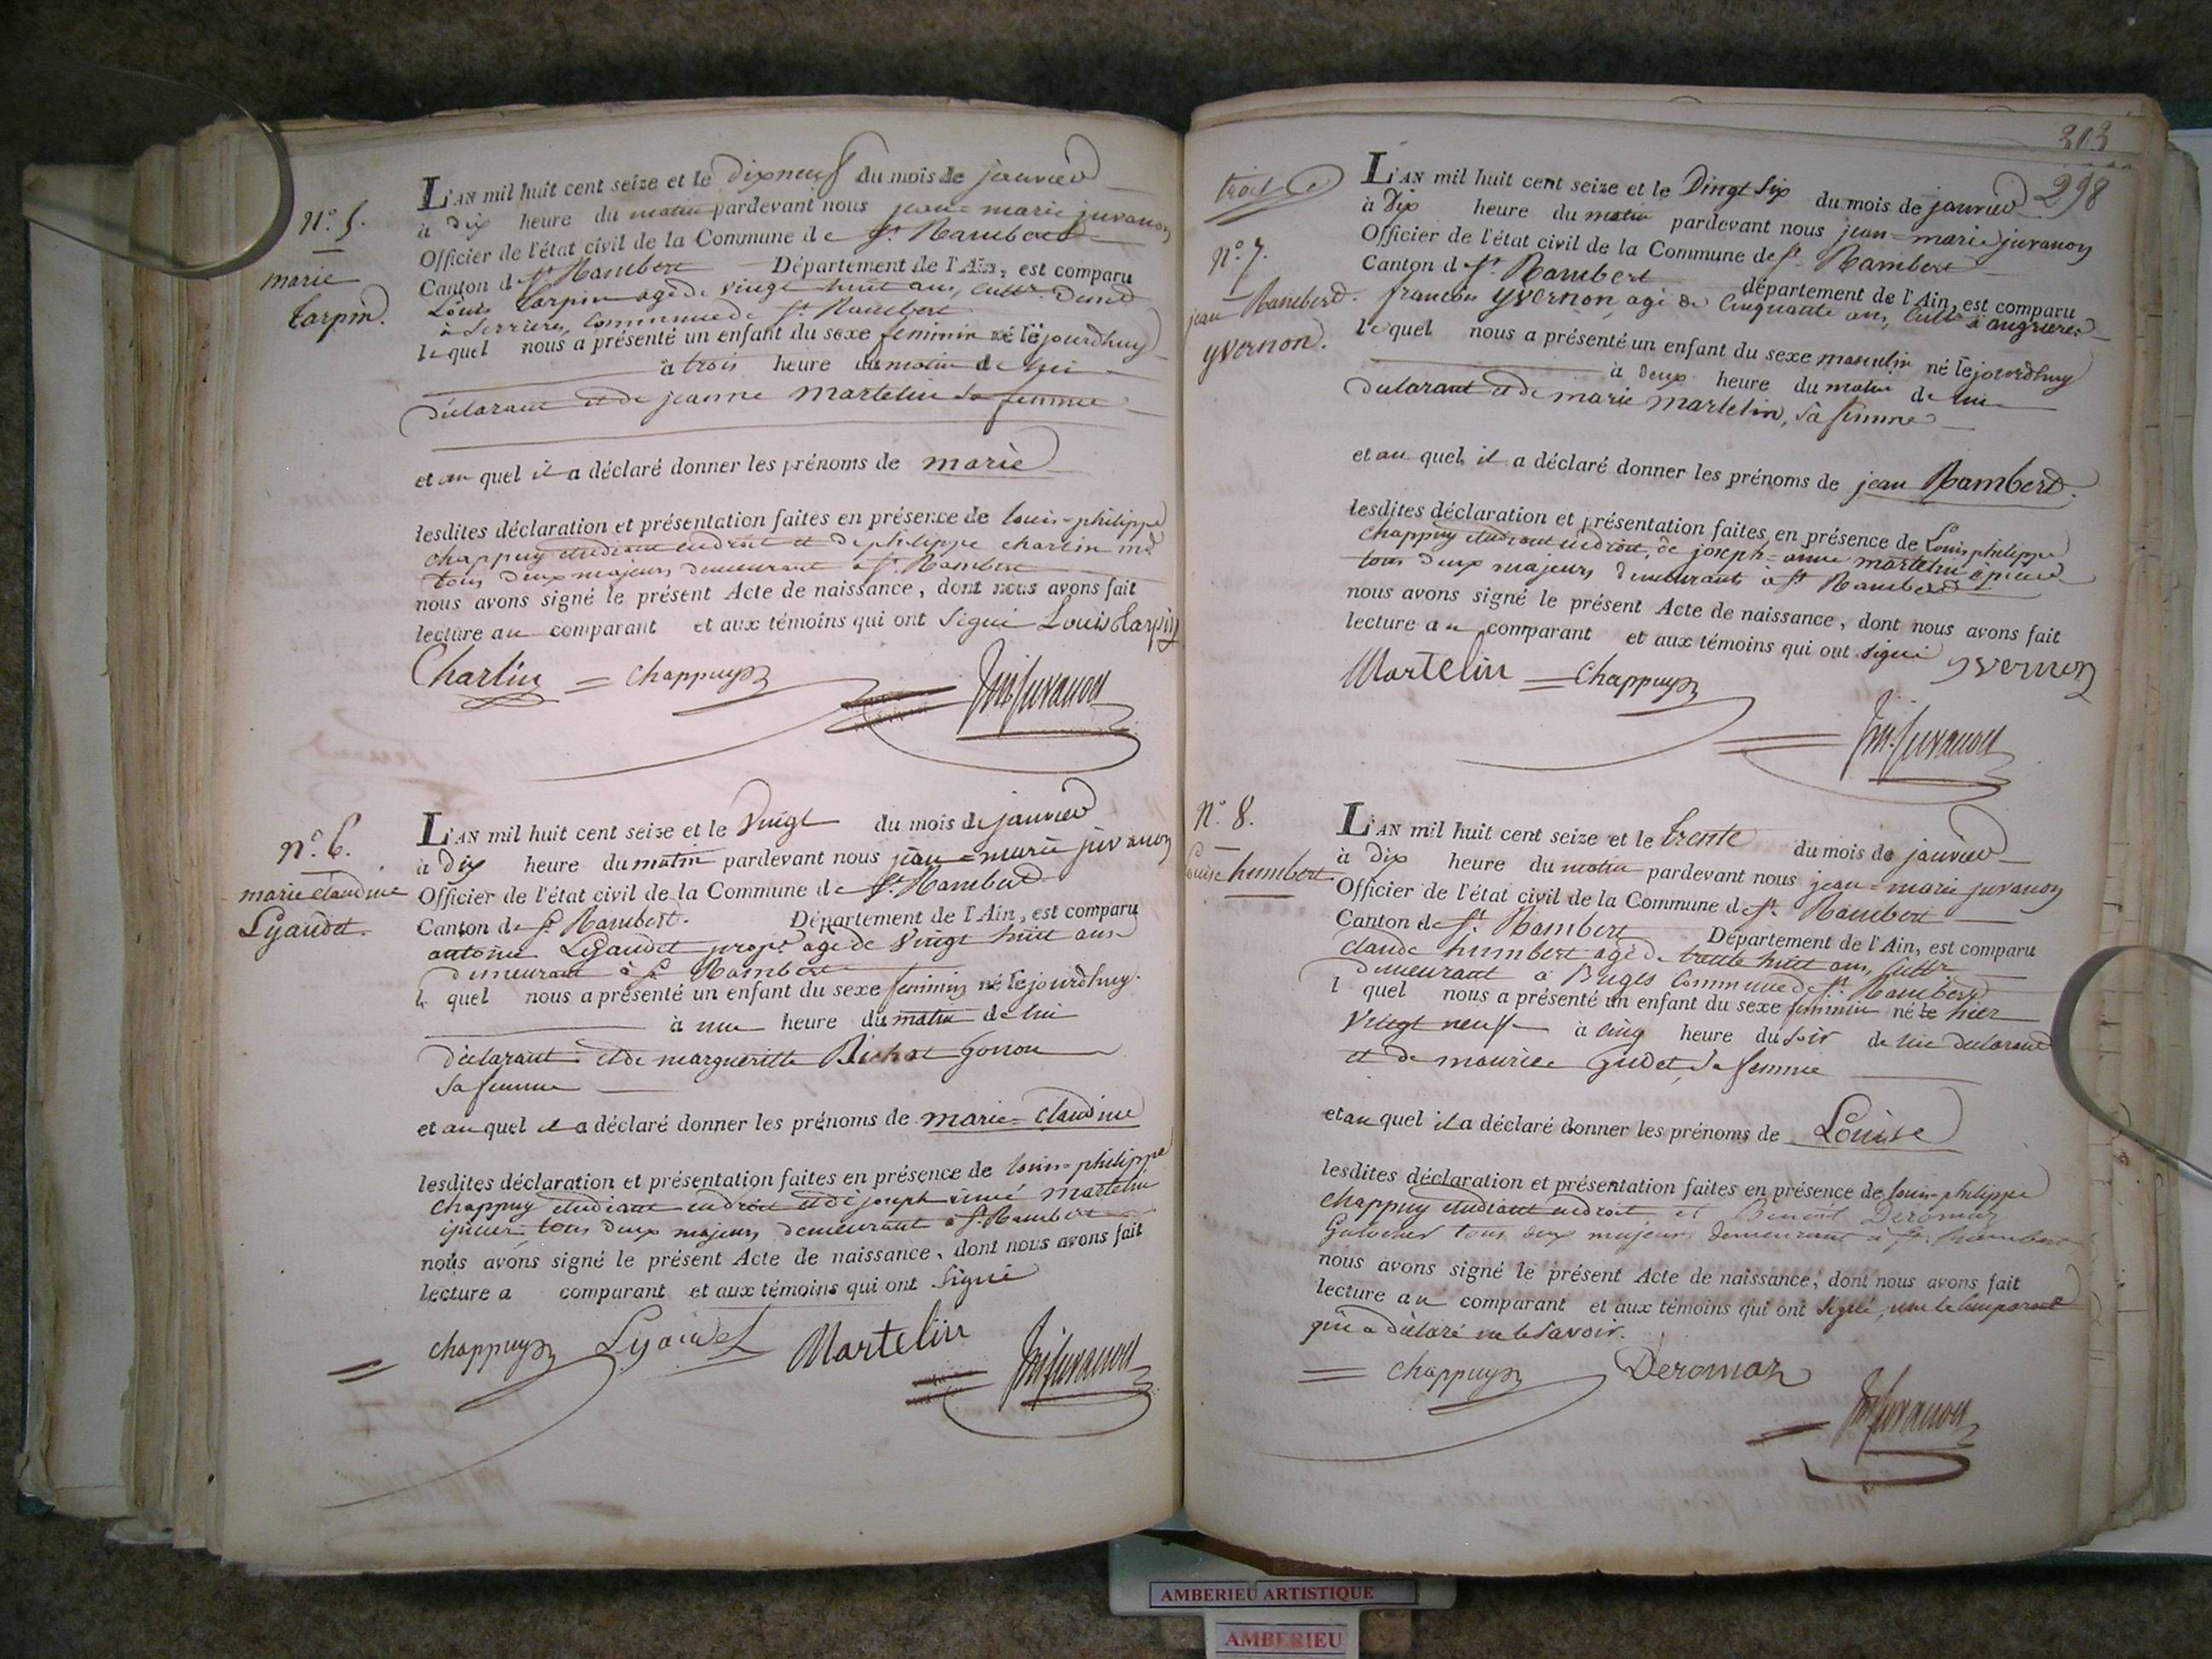 n.o 5.
marie
tarpin.
L'AN mil huit cent seize et le dixneuf du mois de janvier
à dix heure du matin pardevant nous jean-marie juvanon
Officier de l'état civil de la Commune de St. Rambert
Canton de St. Rambert Département de l'Ain, est comparu
Louis tarpin agé de vingt huit ans, cultr. demt
à Serrieres, Commune de St. Rambert
lequel nous a présenté un enfant du sexe feminin né le jourdhuy
à trois heure du matin de lui
déclarant et de jeanne martelin sa femme
et au quel il a déclaré donner les prénoms de marie
lesdites déclaration et présentation faites en présence de louis-philippe
chappuy étudiant en droit et de philippe charlin md
tous deux majeurs demeurant à St. Rambert
nous avons signé le présent Acte de naissance, dont nous avons fait
lecture au comparant et aux témoins qui ont signé Louis tarpin
Charlin = chappuys Jm. Juvanon
n.o 6.
marie claudine
Lyaudet.
L'AN mil huit cent seize et le vingt du mois de janvier
à dix heure du matin pardevant nous jean-marie juvanon
Officier de l'état civil de la Commune de St. Rambert
Canton de St. Rambert. Département de l'Ain, est comparu
antoine Lyaudet propre. agé de vingt huit ans
demeurant à St. Rambert
le quel nous a présenté un enfant du sexe feminin né le jourdhuy.
à une heure du matin de lui
déclarant et de margueritte Bichat gonon
sa femme
et au quel il a déclaré donner les prénoms de marie-claudine
lesdites déclaration et présentation faites en présence de louis-philippe
chappuy étudiant en droit et de joseph aimé martelin
épicier tous deux majeurs demeurant à St. Rambert
nous avons signé le présent Acte de naissance, dont nous avons fait
lecture a comparant et aux témoins qui ont signé
= chappuys Lyaudet Martelin Jm Juvanon
303
298
trois
n.o 7.
jean Rambert.
yvernon.
L'AN mil huit cent seize et le vingt six du mois de janvier
à dix heure du matin pardevant nous jean-marie juvanon
Officier de l'état civil de la Commune de St. Rambert
Canton de St. Rambert département de l'Ain, est comparu
francois yvernon, agé de cinquante ans, cultr. à angrieres
lequel nous a présenté un enfant du sexe masculin né le jourdhuy
à deux heure du matin de lui
déclarant et de marie martelin, sa femme
et au quel il a déclaré donner les prénoms de jean Rambert.
lesdites déclaration et présentation faites en présence de Louis philippe
chappuy étudiant en droit, de joseph-aime martelin épicier
tous deux majeurs demeurant à St Rambert
nous avons signé le présent Acte de naissance, dont nous avons fait
lecture au comparant et aux témoins qui ont signé yvernon
Martelin = chappuys
Jm. Juvanon
n.o 8.
Louise humbert
L'AN mil huit cent seize et le trente du mois de janvier
à dix heure du matin pardevant nous jean-marie juvanon
Officier de l'état civil de la Commune de St. Rambert
Canton de St. Rambert Département de l'Ain, est comparu
claude humbert agé de trente huit ans, cultr
demeurant à Buges Commune de St. Rambert
l quel nous a présenté un enfant du sexe feminin né le hier
vingt neuf à cinq heure du soir de lui déclarant
et de maurice Gudet, sa femme
et au quel il a déclaré donner les prénoms de Louise
lesdites déclaration et présentation faites en présence de louis-philippe
chappuy étudiant en droit et Benoit Deromas
Galocher tous deux majeurs demeurant à St. Rambert
nous avons signé le présent Acte de naissance, dont nous avons fait
lecture au comparant et aux témoins qui ont signé, non le comparant
qui a déclaré ne le savoir.
= chappuys Deromas
Jm Juvanon
AMBERIEU ARTISTIQUE
AMBERIEU